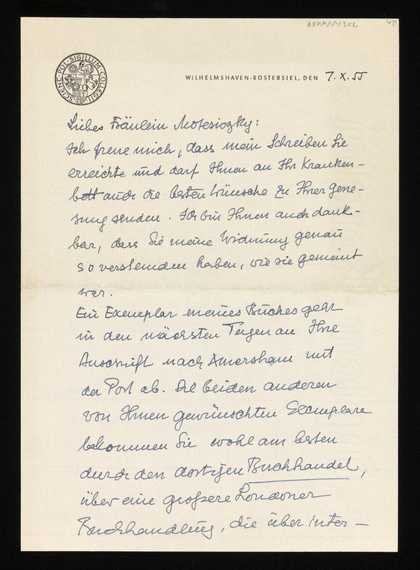 WILHELMSHAVEN-RÜSTERSIEL, DEN 7. X. 55
Liebes Fräulein Motesiczky:
Ich freue mich, dass mein Schreiben Sie
erreichte und darf Ihnen an Ihr Kranken-
bett auch die besten Wünsche zu Ihrer Gene-
sung senden. Ich bin Ihnen auch dank-
bar, dass Sie meine Widmung genau
so verstanden haben, wie sie gemeint
war.
Ein Exemplar meines Buches geht
in den nächsten Tagen an Ihre
Anschrift nach Amersham mit
der Post ab. Die beiden anderen
von Ihnen gewünschten Exemplare
bekommen Sie wohl am besten
durch den dortigen Buchhandel,
über eine grössere Londoner
Buchhandlung, die über inter-